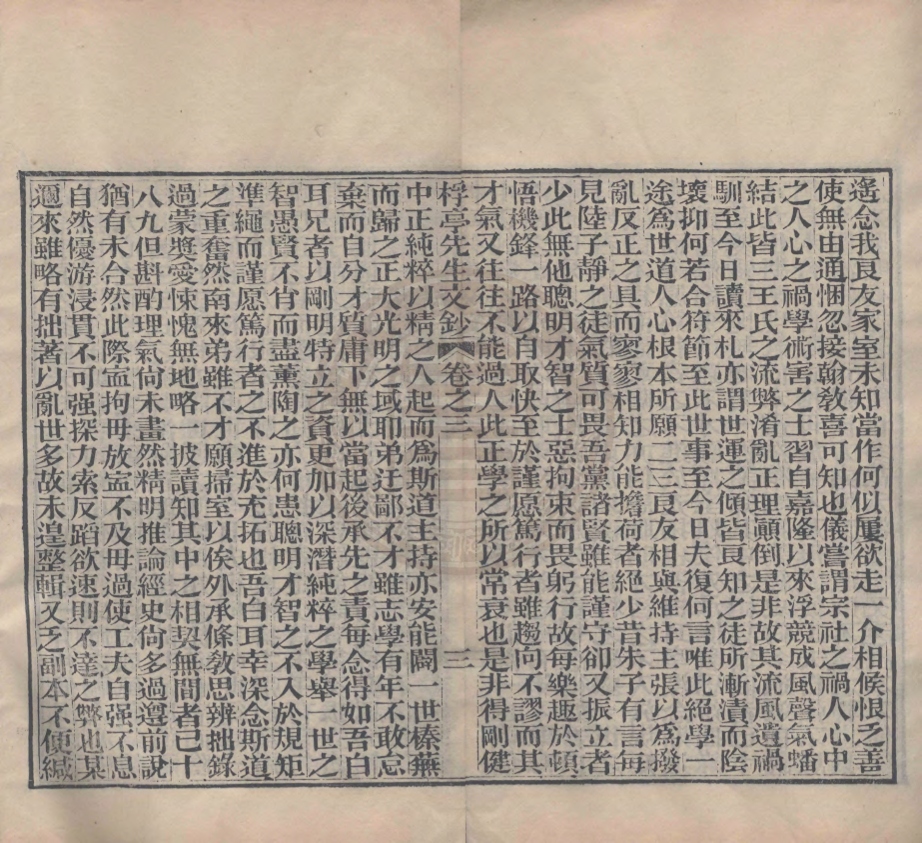 遙念我良友家室未知當作何似屢欲走一介相候恨乏善
使無由通悃忽接翰敎喜可知也儀嘗謂宗社之禍人心中
之人心之禍學術害之士習自嘉隆以來浮競成風聲氣蟠
結此皆三王氏之流弊淆亂正理顚倒是非故其流風遺禍
馴至今日讀來札亦謂世運之傾皆良知之徒所漸漬而陰
壞抑何若合符節至此世事至今日夫復何言唯此絕學一
途爲世道人心根本所願二三良友相與維持主張以爲撥
亂反正之具而寥寥相知力能擔荷者絕少昔朱子有言每
見陸子靜之徒氣質可畏吾黨諸賢雖能謹守卻又振立者
少此無他聰明才智之士惡拘束而畏躬行故每樂趣於頓
悟機鋒一路以自取快至於謹愿篤行者雖趨向不謬而其
才氣又往往不能過人此正學之所以常衰也是非得剛健
桴亭先生文鈔 卷之三 三
中正純粹以精之人起而爲斯道主持亦安能闢一世榛蕪
而歸之正大光明之域耶弟迂鄙不才雖志學有年不敢忘
棄而自分才質庸下無以當起後承先之責每念得如吾白
耳兄者以剛明特立之資更加以深潛純粹之學舉一世之
智愚賢不肖而盡薰陶之亦何患聰明才智之不入於規矩
準繩而謹愿篤行者之不進於充拓也吾白耳幸深念斯道
之重奮然南來弟雖不才願掃室以俟外承條敎思辨拙錄
過蒙獎愛悚愧無地略一披讀知其中之相契無間者已十
八九但斟酌理氣尙未畫然精明推論經史尙多過遵前說
猶有未合然此際寍拘毋放寍不及毋過使工夫自强不息
自然優游浸貫不可强探力索反蹈欲速則不達之弊也某
邇來雖略有拙著以亂世多故未遑整輯又乏副本不便緘